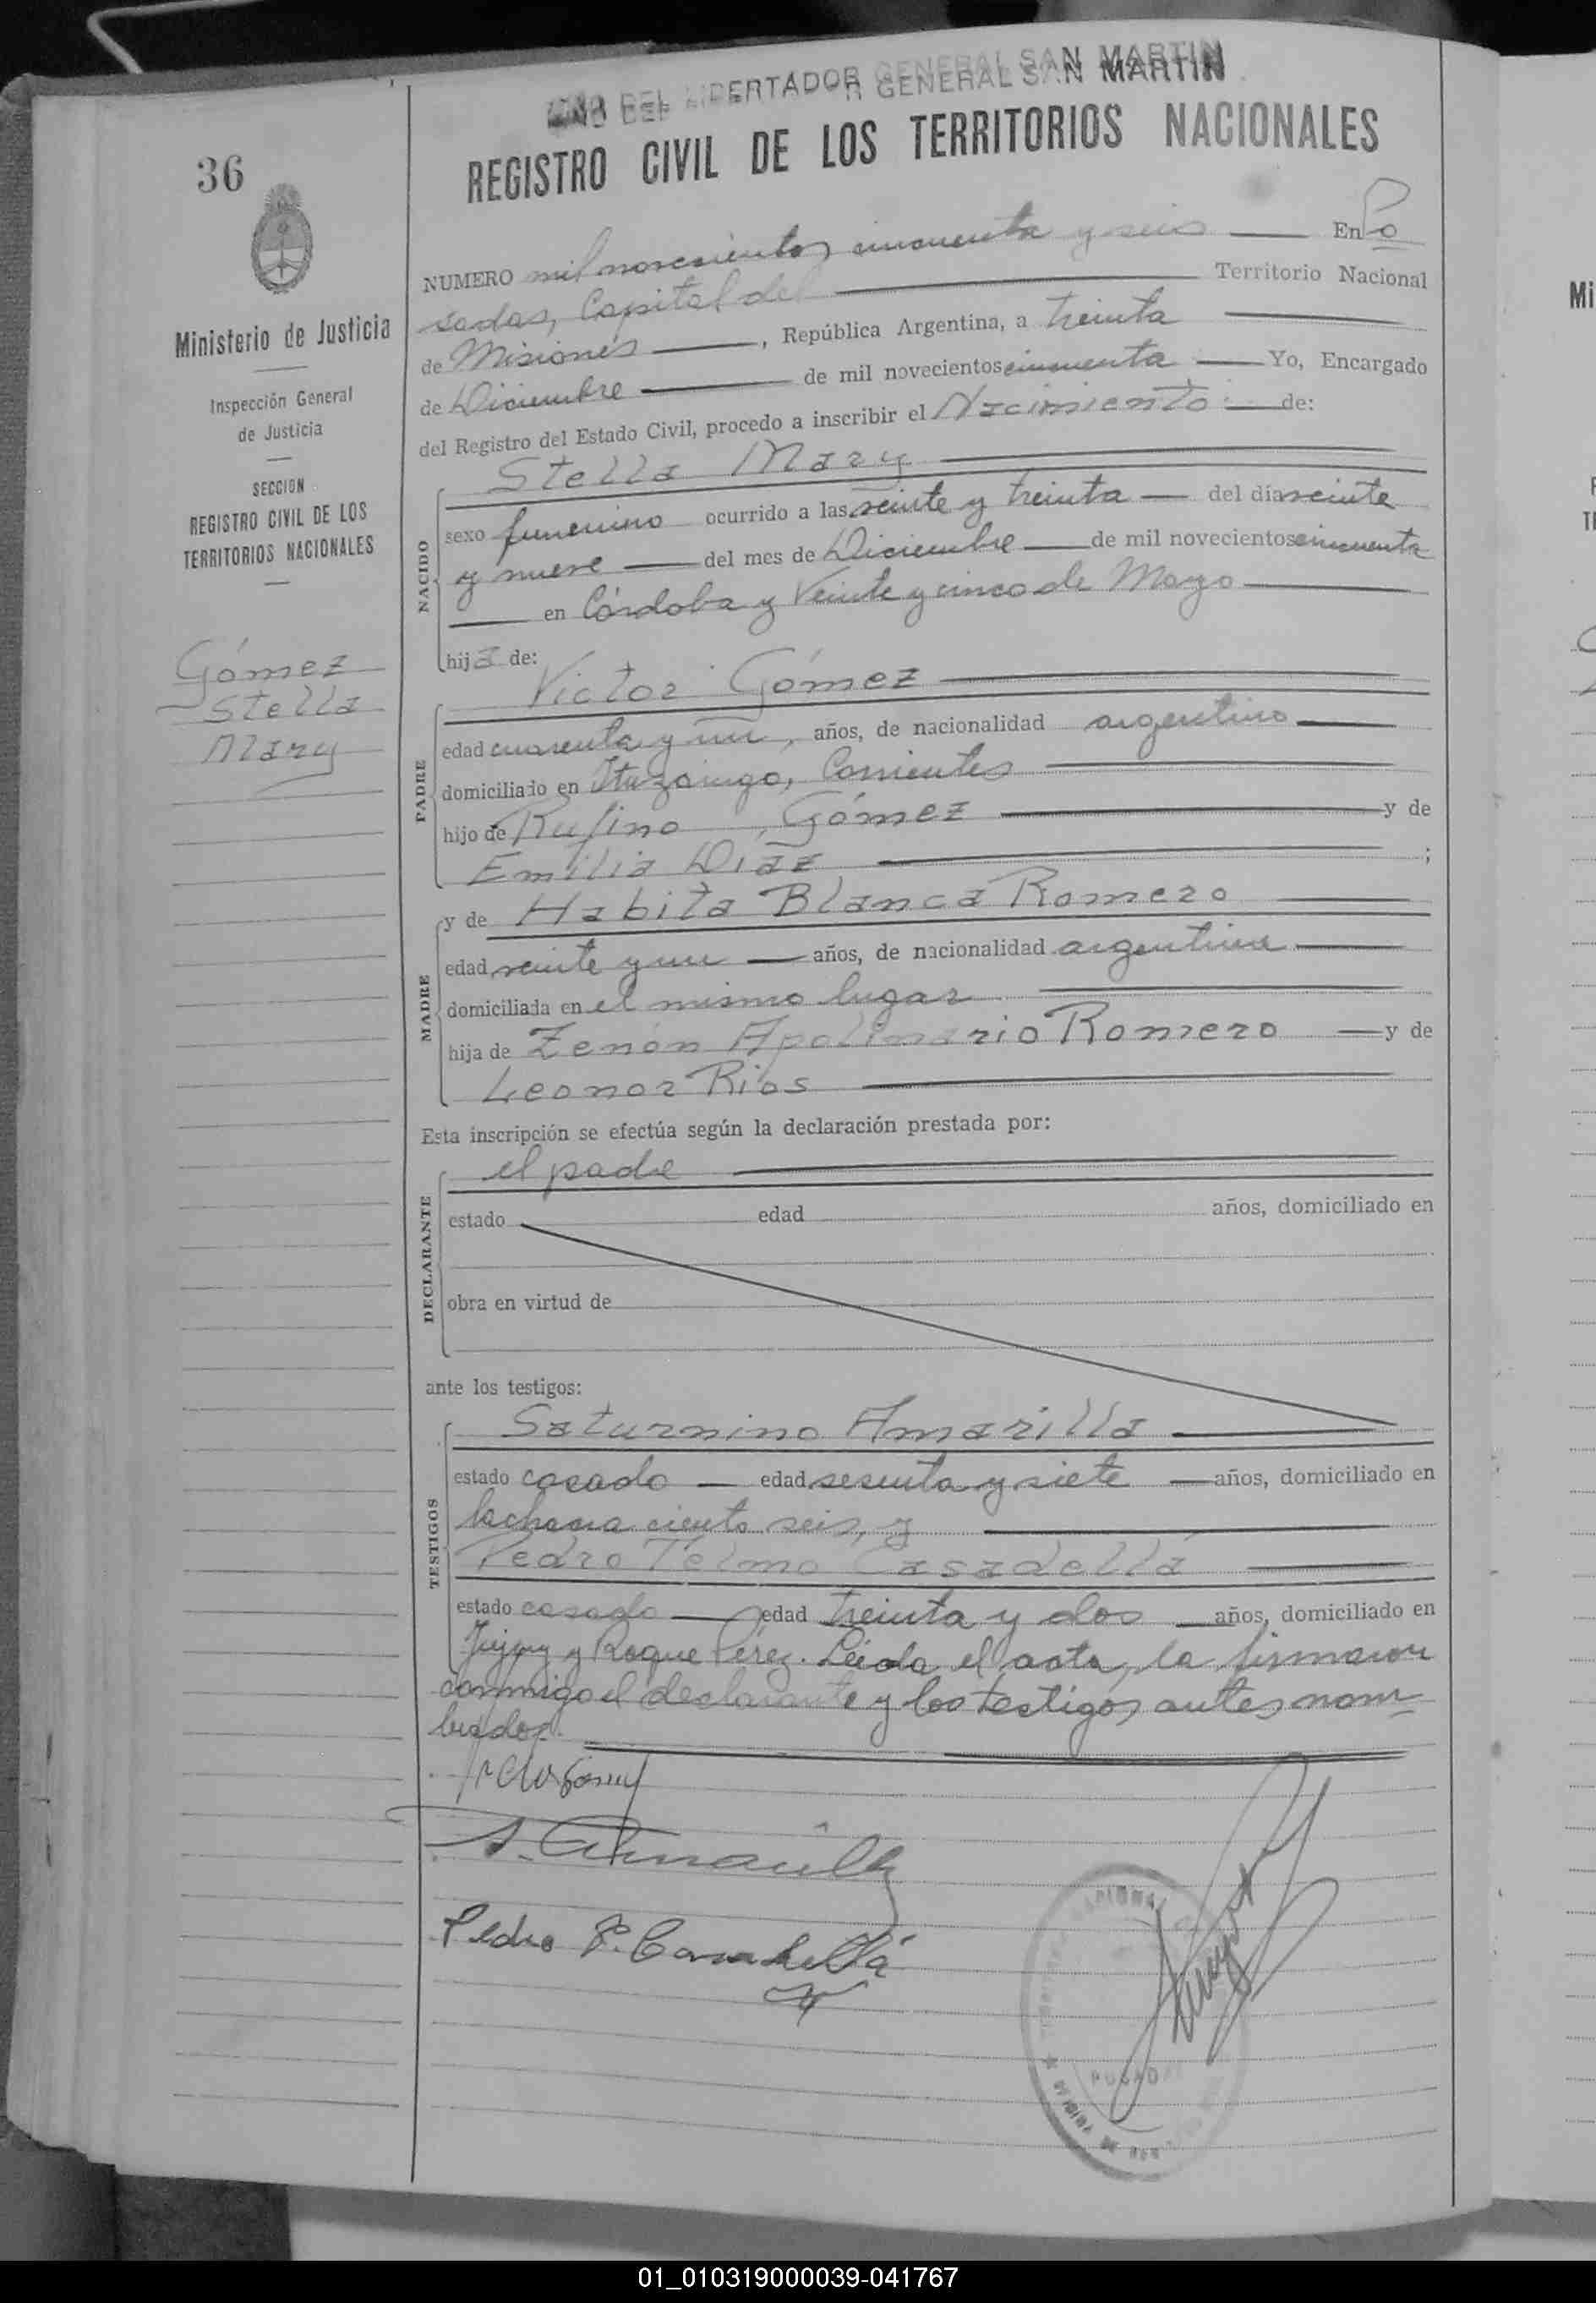 AÑO DEL LIBERTADOR GENERAL SAN MARTIN
REGISTRO CIVIL DE LOS TERRITORIOS NACIONALES
36
Ministerio de Justicia
Inspección General
de Justicia
SECCION
REGISTRO CIVIL DE LOS
TERRITORIOS NACIONALES
Gómez
Stella
Mary
NUMERO mil novecientos cincuenta y seis En Po
sadas, Capital del Territorio Nacional
de Misiones, República Argentina, a treinta
de Diciembre de mil novecientos cincuenta Yo, Encargado
del Registro del Estado Civil, procedo a inscribir el Nacimiento de:
Stella Mary
NACIDO
sexo femenino ocurrido a las veinte y treinta del día veinte
y nueve del mes de Diciembre de mil novecientos cincuenta
en Córdoba y Veinte y cinco de Mayo
hija de:
Victor Gómez
PADRE
edad cuarenta y un, años, de nacionalidad argentino
domiciliado en Ituzaingo, Corrientes
hijo de Rufino, Gómez y de
Emilia Díaz ;
y de Habita Blanca Romero
MADRE
edad veinte y un años, de nacionalidad argentina
domiciliada en el mismo lugar
hija de Zenón Apolinario Romero y de
Leonor Rios
Esta inscripción se efectúa según la declaración prestada por:
el padre
DECLARANTE
estado edad años, domiciliado en
obra en virtud de
ante los testigos:
Saturnino Amarilla
TESTIGOS
estado casado edad sesenta y siete años, domiciliado en
la chacra ciento seis, y
Pedro Telmo Casadellá
estado casado edad treinta y dos años, domiciliado en
Jujuy y Roque Pérez. Leída el acta, la firmaron
conmigo el declarante y los testigos antes nom
brados.
S. Amarilla
Pedro T. Casadellá
POSADAS
Mi
01_010319000039-041767